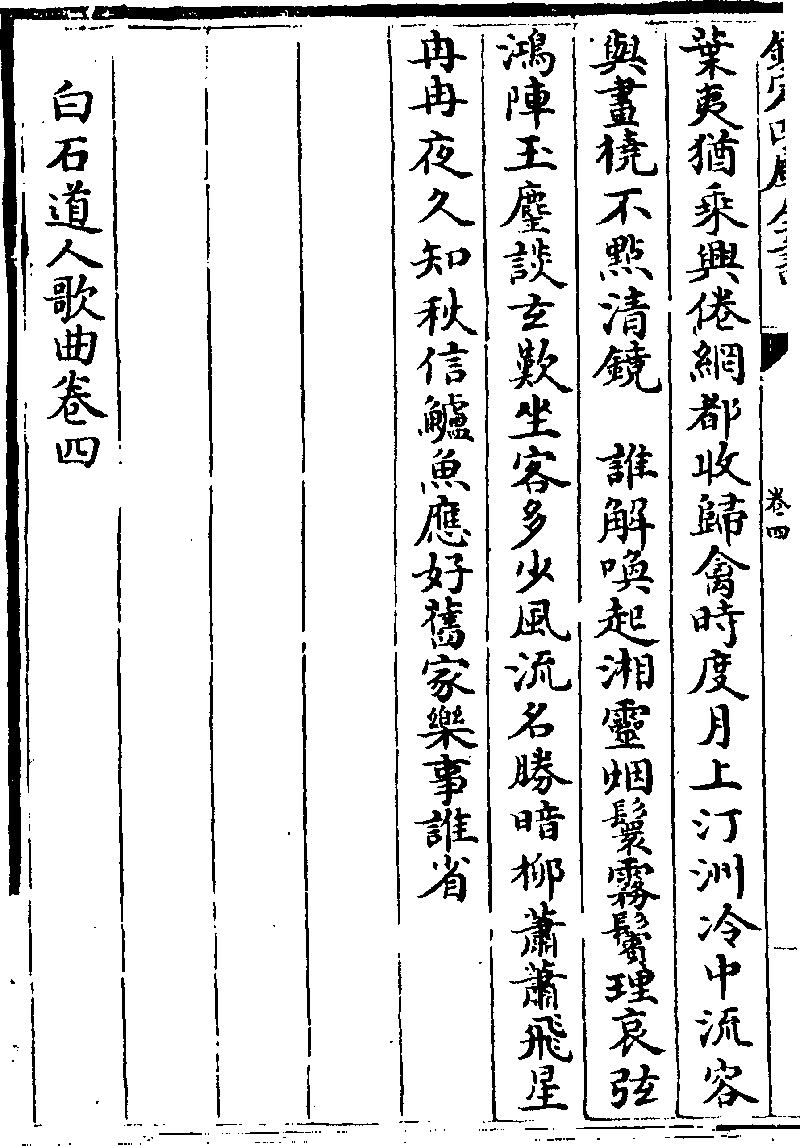 欽定四庫全書
卷四
葉夷猶乘興倦網都收歸禽時度月上汀洲冷中流容
與畫橈不點清鏡　誰解喚起湘靈烟鬟霧鬢理哀弦
鴻陣玉麈談玄歎坐客多少風流名勝暗柳蕭蕭飛星
冉冉夜久知秋信鱸魚應好舊家樂事誰省
白石道人歌曲卷四